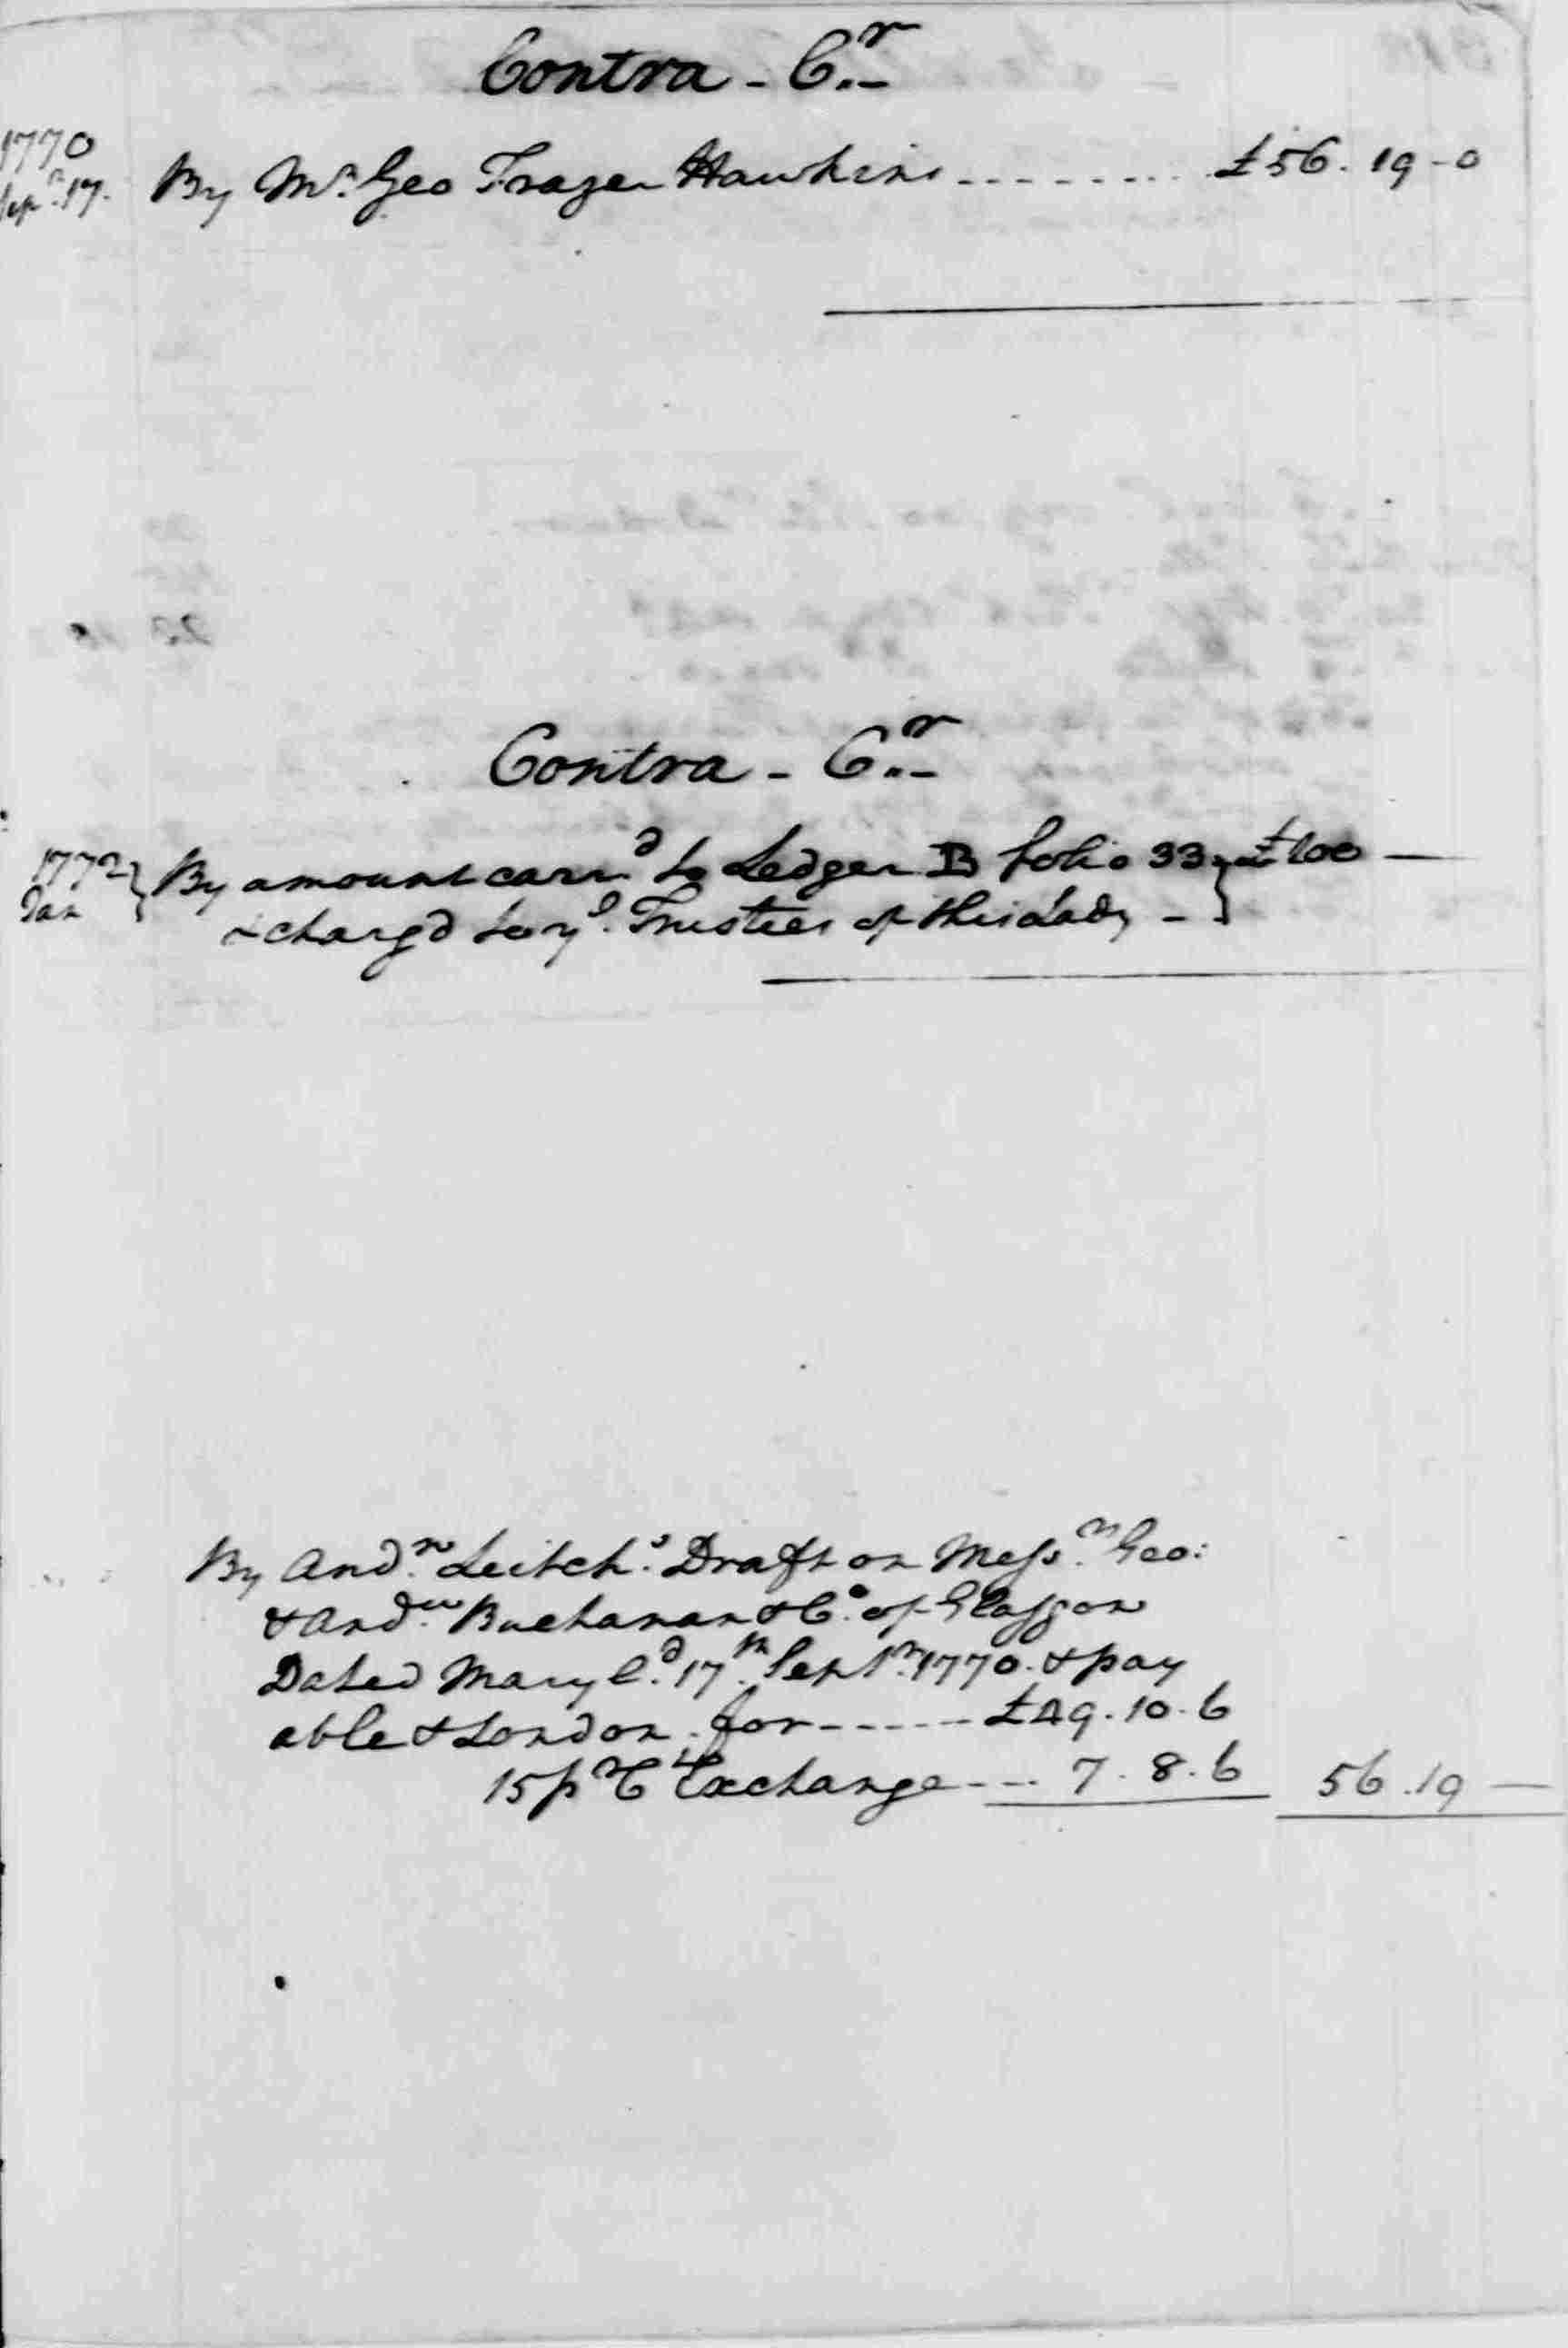 Contra - Cr.
1770
Sepr. 17. By Mr. Geo Frazer Hawkins --------- £56. 19 - 0
Contra - Cr.
1772 By amount carrd. to Ledger B folio 33 £100 —
Jan & chargd to ye. Trustees of this Lady -
By Andw. Leitch's Draft on Messrs. Geo:
& Andw. Buchanan & Co. of Glassgow
Dated Maryld. 17th. Septr. 1770. & pay
able & London. for ------ £49. 10. 6
15 pr Ct Exchange --- 7. 8. 6 56. 19 —